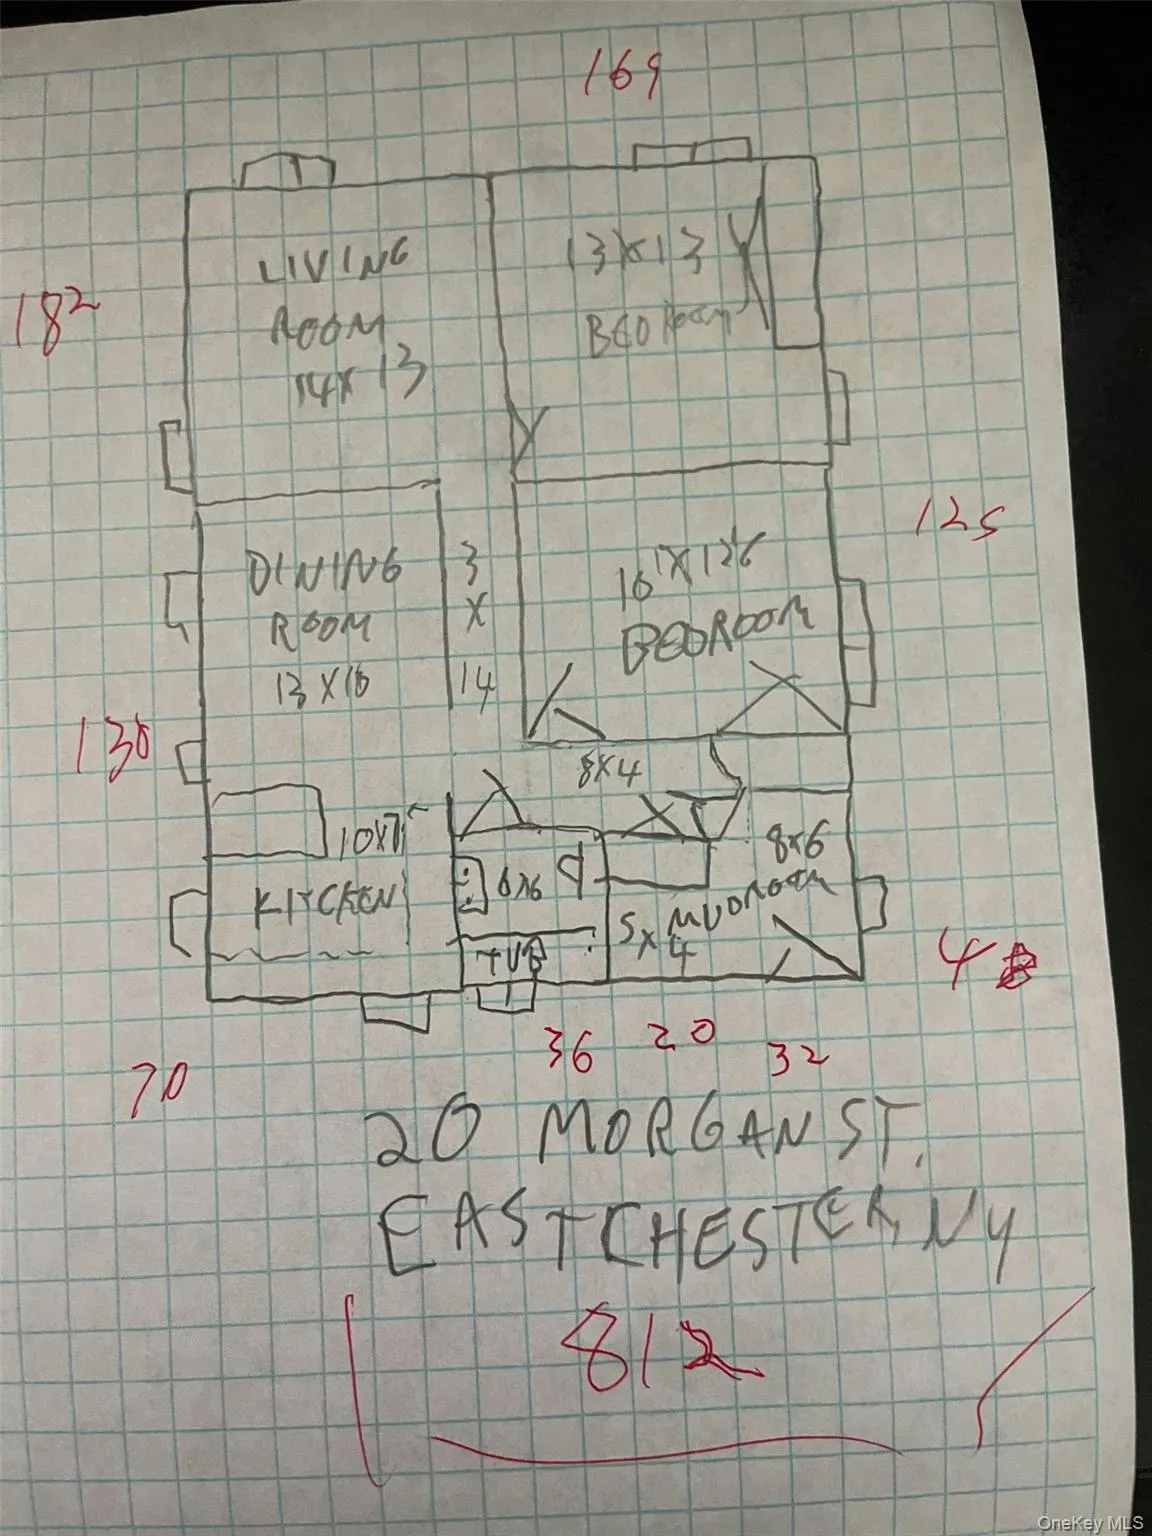 169
LIVING
ROOM
14X13
13X13
BEDROOM
182
DINING
ROOM
13X10
3
X
14
BEDROOM
125
130
8X4
KITCHEN
6X6
TUB
8X6
MUDROOM
5X4
48
70
36
20
32
20 MORGAN ST.
EASTCHESTER, NY
812
OneKey MLS